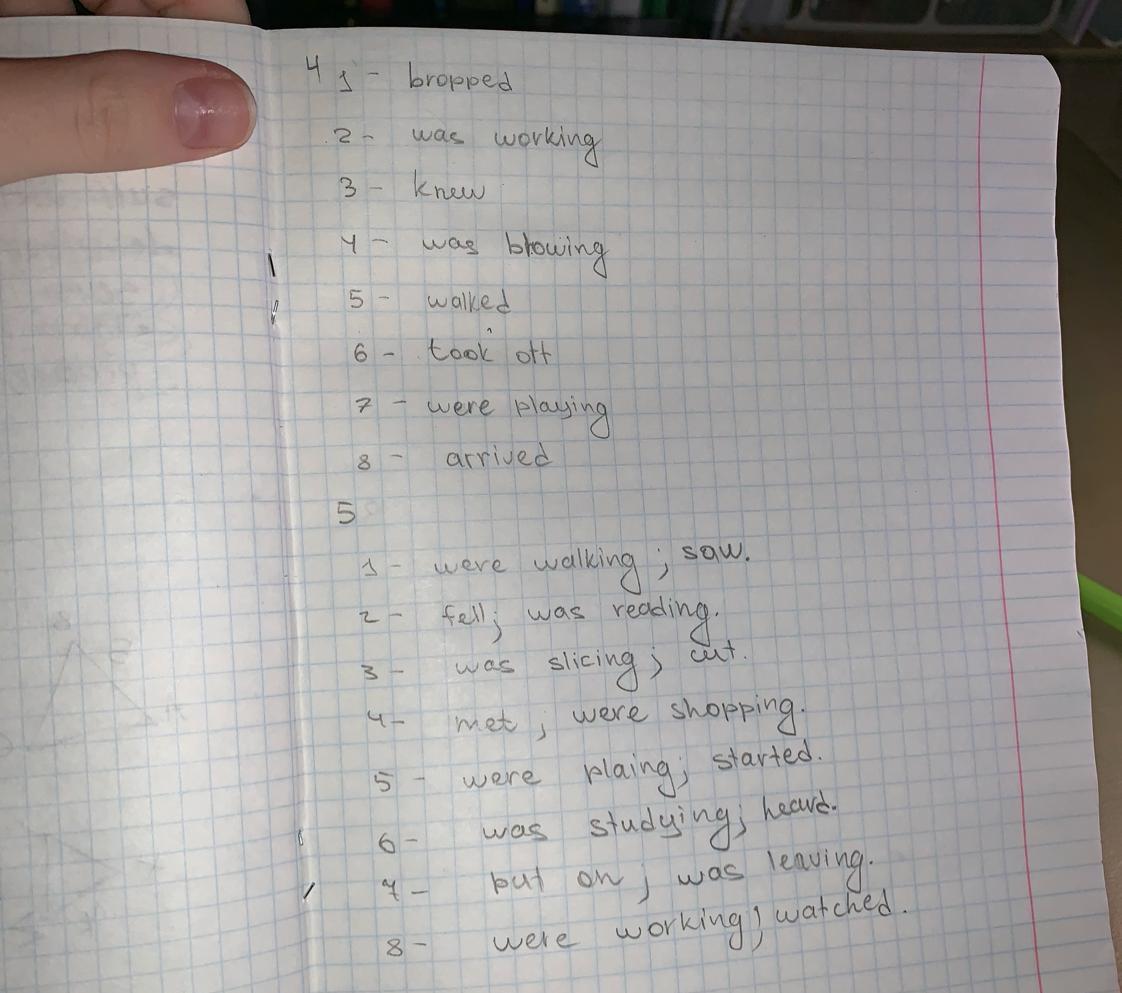 4 1 - bropped
2 - was working
3 - knew
4 - was blowing
5 - walked
6 - took off
7 - were playing
8 - arrived
5
1 - were walking ; saw.
2 - fell; was reading.
3 - was slicing; cut.
4 - met ; were shopping.
5 - were plaing; started.
6 - was studying; heard.
7 - put on ; was leaving.
8 - were working; watched.